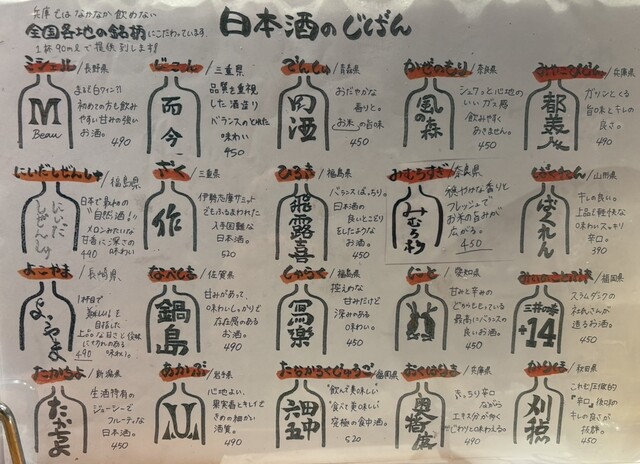 兵庫ではなかなか飲めない
全国各地の銘柄にこだわっています。
1杯90mlで提供致します!
日本酒のじげん
ミシェル/長野県
M
Beau
まるで白ワイン!?
初めての方も飲み
やすい甘みの強い
お酒。
490
じこん/三重県
而今
品質を重視
した酒造り
バランスのとれた
味わい
450
でんしゅ/青森県
田酒
おだやかな
香りと。
お米の旨味
450
かぜのもり/奈良県
風の森
シュワッと心地の
いいガス感
飲みやすく
あきません。
450
みやこびじん/兵庫県
都美人
ガツンとくる
旨味とキレの
良さ。
490
にいだしぜんしゅ/福島県
にいだ
しぜんしゅ
日本で最初の
"自然酒"!!
メロンみたいな
甘香に深さの
味わい
440
ざく/三重県
作
伊勢志摩サミット
でもふるまわれた
入手困難
な日本酒。
520
ひろき/福島県
飛露喜
バランスばっちり。
日本酒の
良いとこどり
をしたような
お酒。
450
みむろすぎ/奈良県
みむろ杉
穏やかな香りと
フレッシュで
お米の旨みが
広がる。
450
ばくれん/山形県
ばくれん
キレの良い。
上品で軽快な
味わいスッキリ
辛口。
390
よこやま/長崎県
よこやま
1杯目で
美味しい!を
目指した
上品な甘さと後味
にキレのある
味わい。
490
なべしま/佐賀県
鍋島
甘みがあって、
味わいしっかりで
存在感のある
お酒。
490
しゃらく/福島県
寫樂
控えめな
甘みだけど
深みのある
味わい。
450
にと/愛知県
甘みと辛みの
どちらももっている
最高にバランスの
良いお酒。
450
みいのことぶき/福岡県
三井の寿
+14
スラムダンクの
社氏さんが
造るお酒。
450
たかちよ/新潟県
たかちよ
生酒特有の
ジューシーで
フルーティな
日本酒。
450
あかぶ/岩手県
心地よい、
果実香とそして
きめの細かい
酒質。
490
たなかろくじゅうご/福岡県
田中
六五
"飲んで美味しい"
"食べて美味しい"
究極の食中酒。
520
おくはりま/兵庫県
奥播磨
きっちり辛口
ながら
エキス分が多く
じわりと味わえる。
490
かりほ/秋田県
刈穂
これぞ圧倒的
『辛口』後味の
キレの良さが
抜群。
450